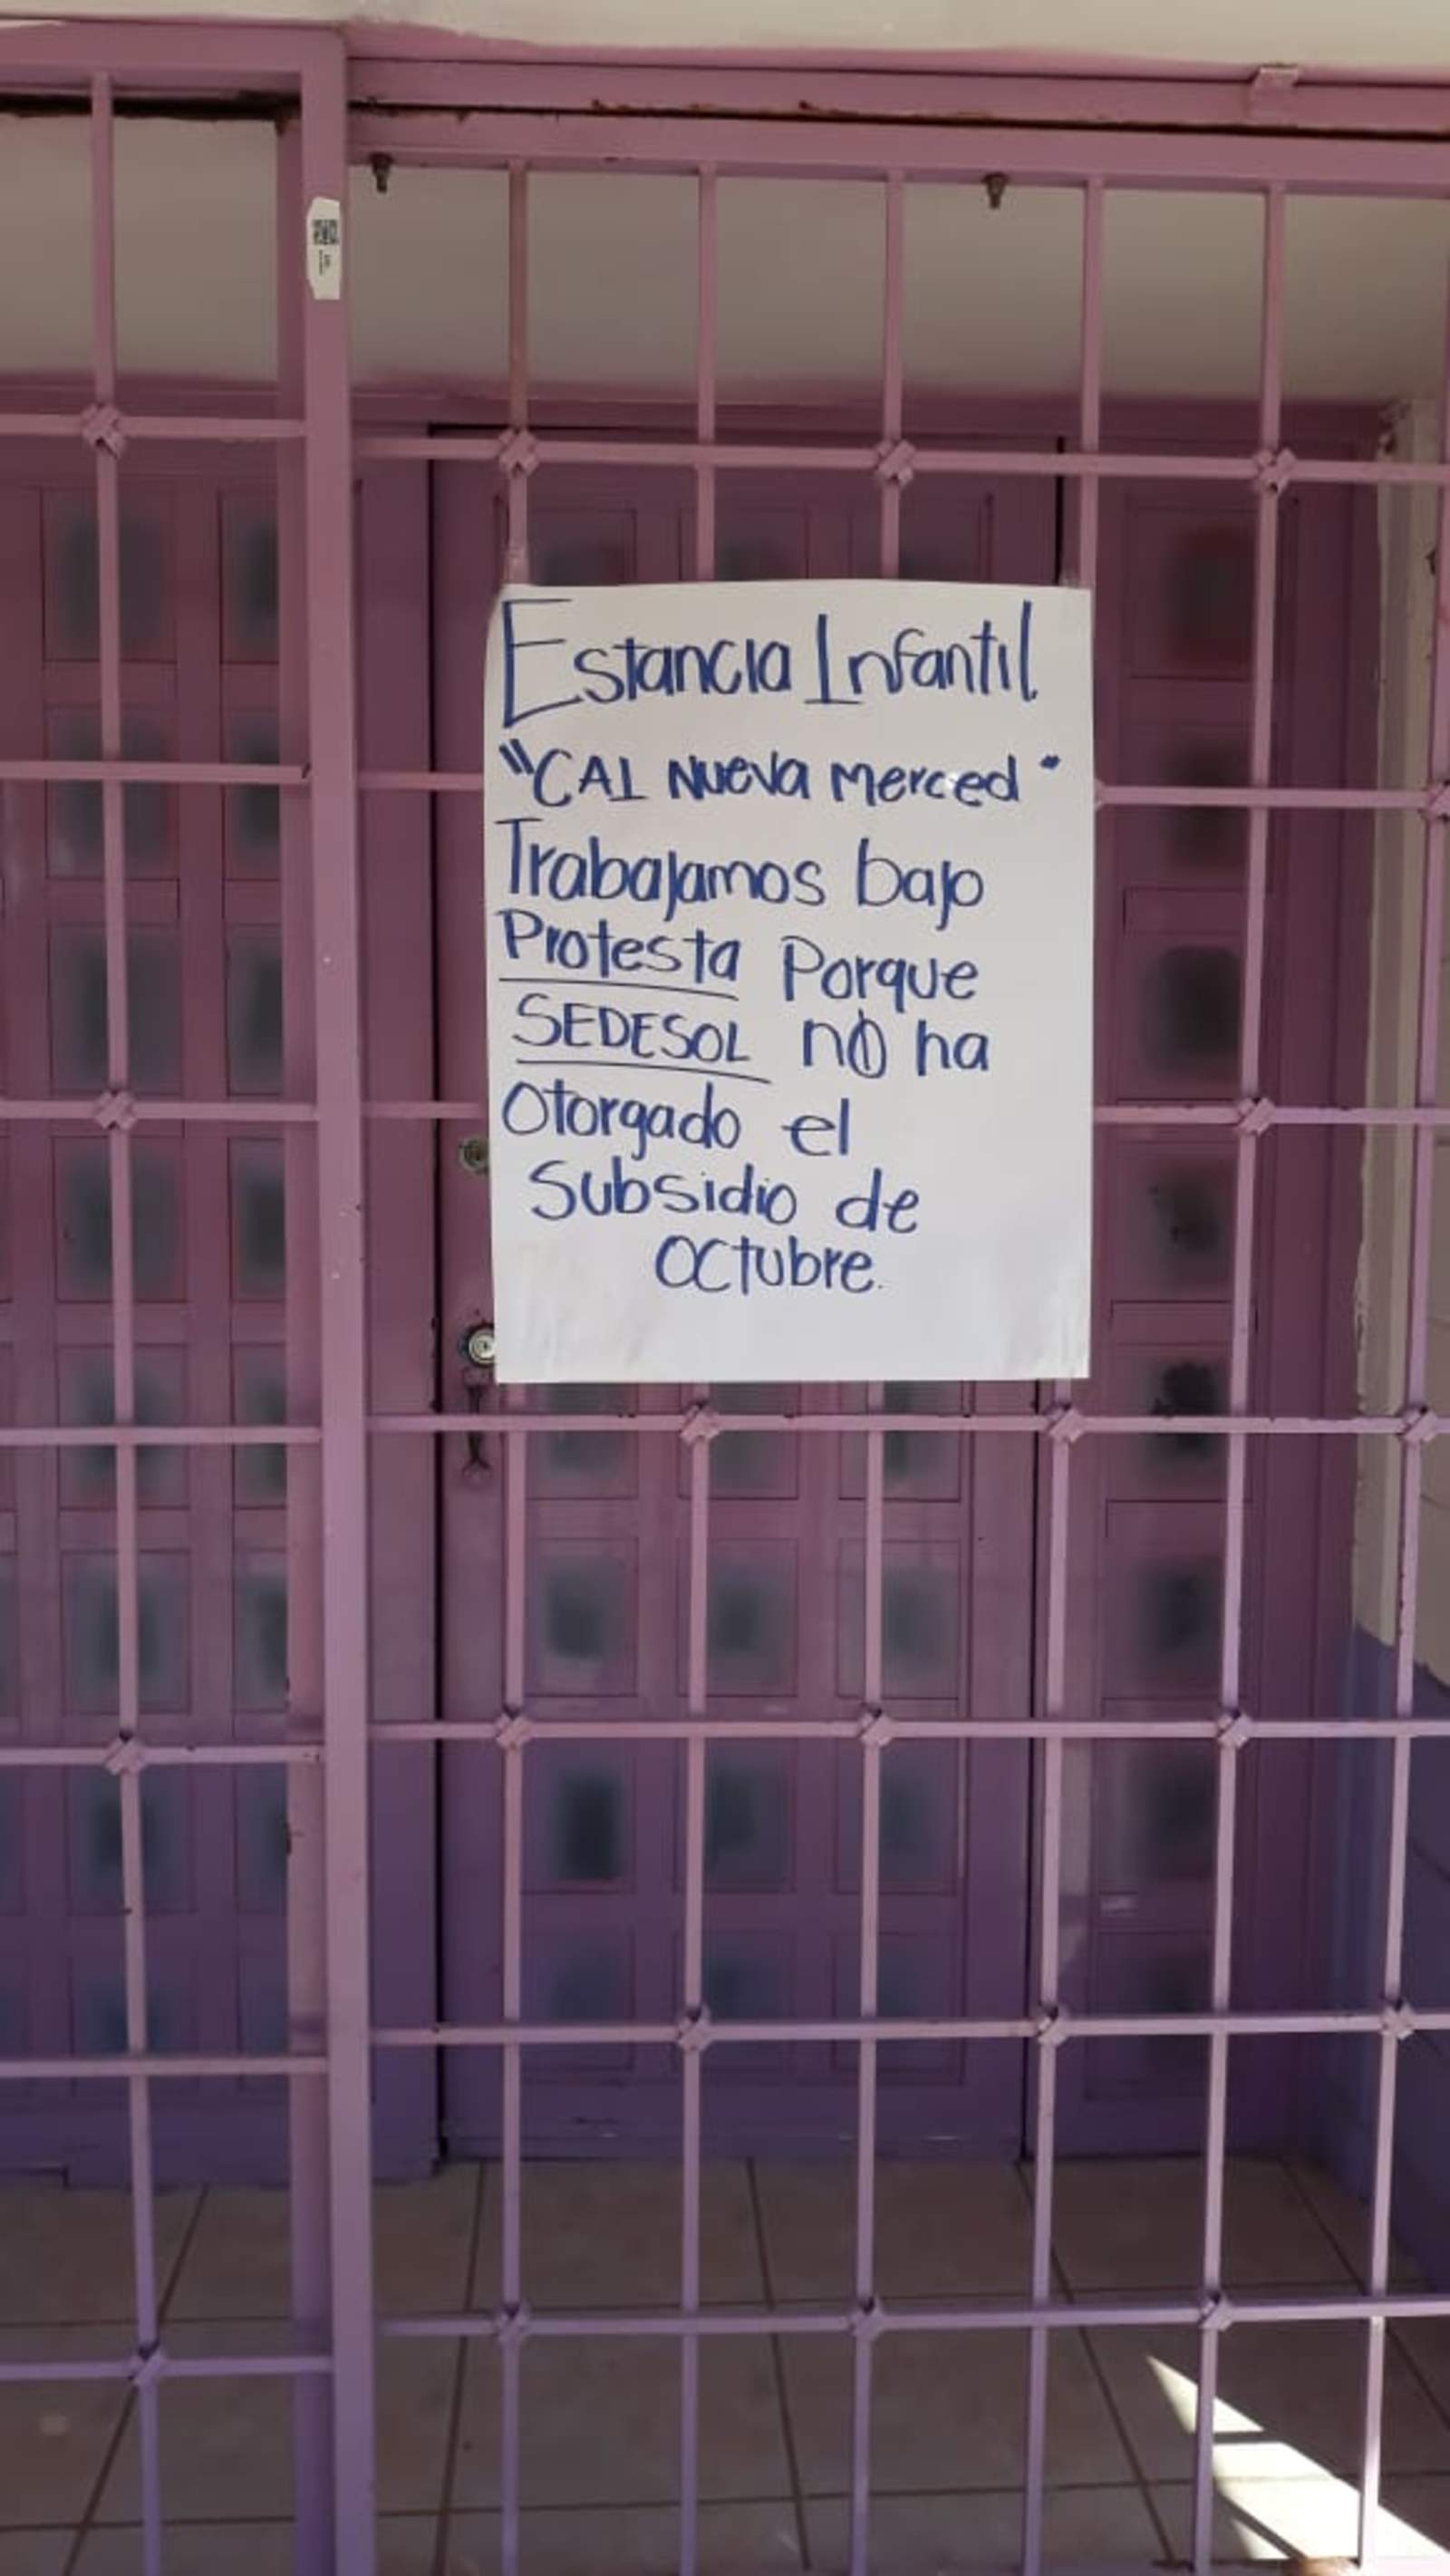 Estancia Infantil.
"CAI Nueva Merced"
Trabajamos bajo
Protesta Porque
SEDESOL no ha
Otorgado el
Subsidio de
Octubre.